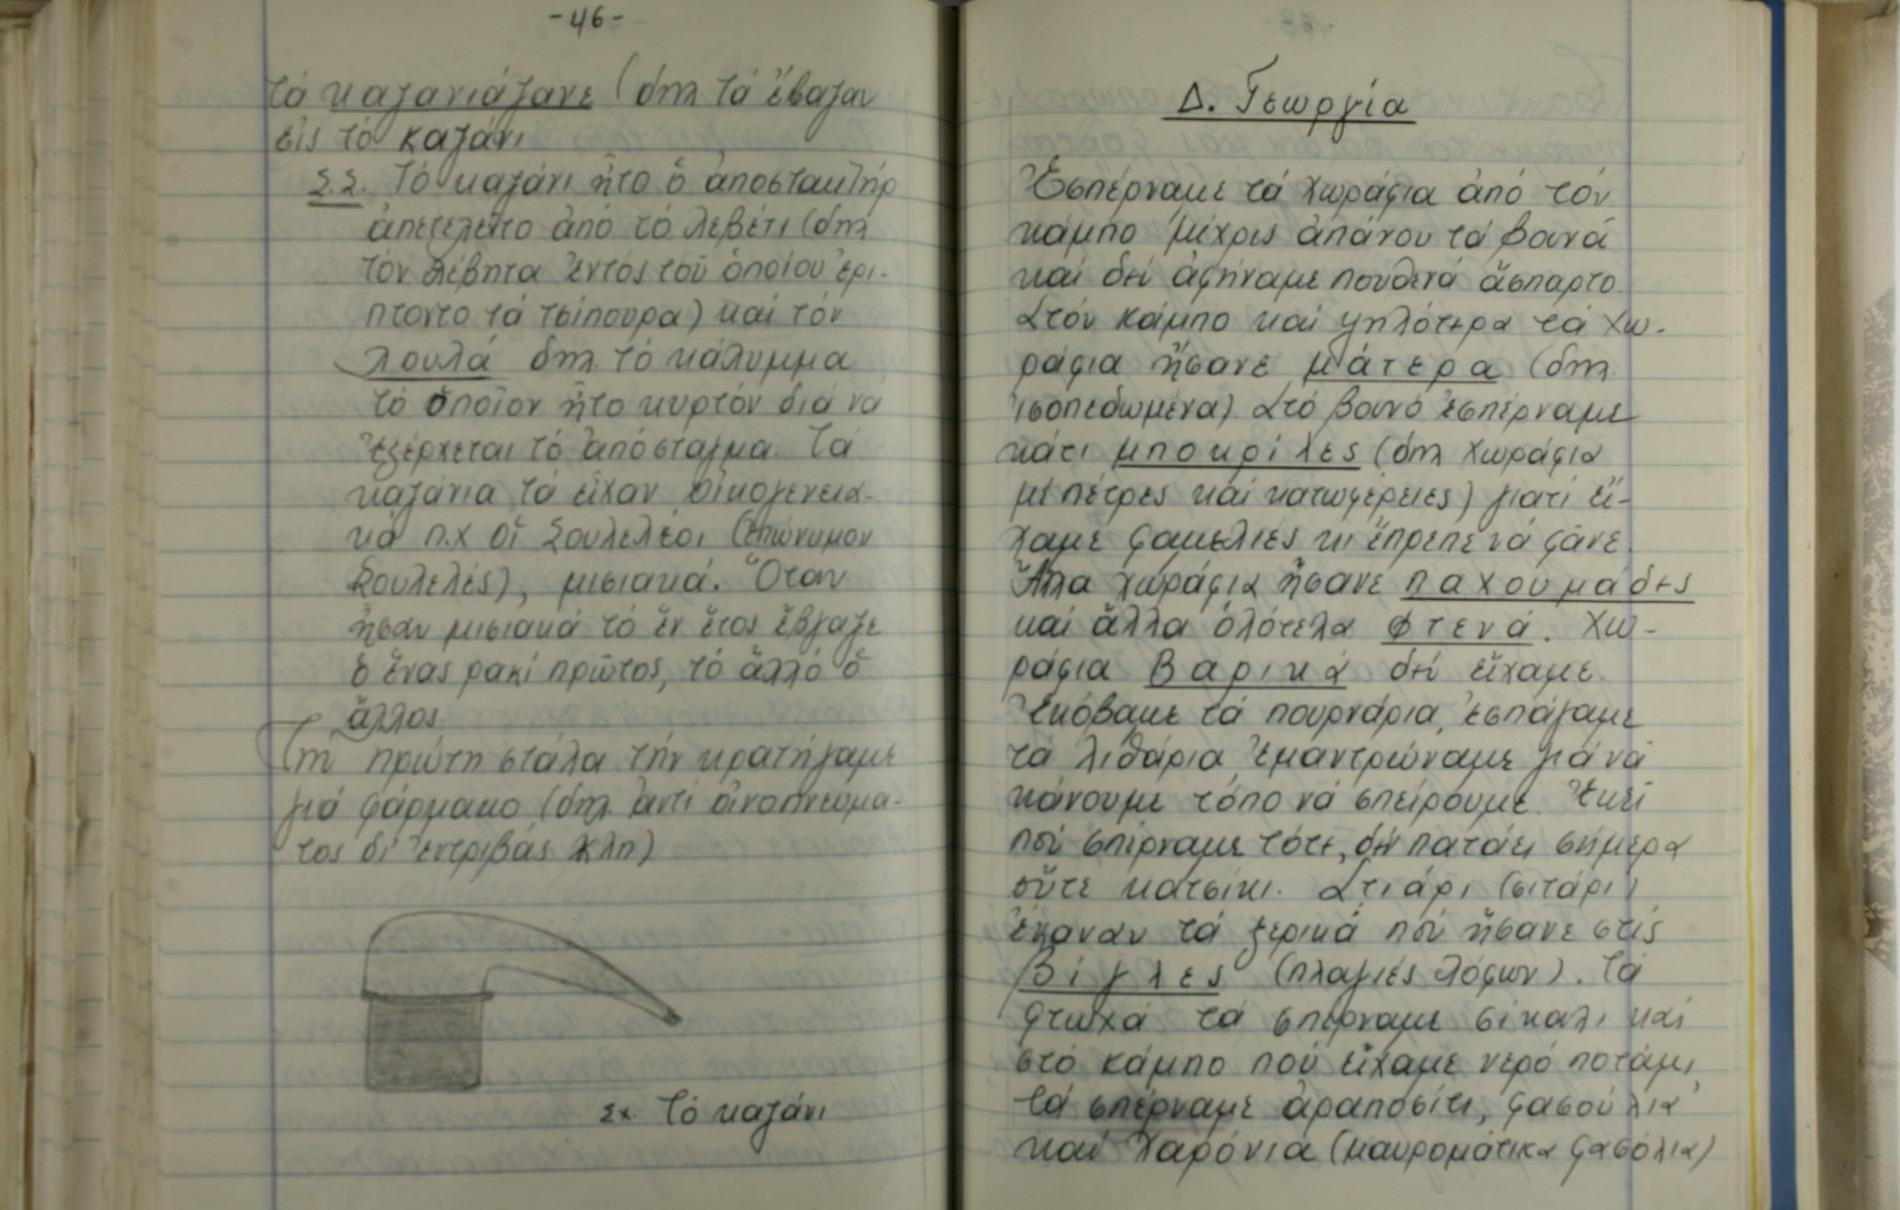 -46-
τά καζανιάζανε (δηλ τά ἔβαζαν
εἰς τό καζάνι
Σ.Σ. Τό καζάνι ἦτο ὁ ἀποστακτήρ
ἀπετελεῖτο ἀπό τό λεβέτι (δηλ
τόν λέβητα ἐντός τοῦ ὁποίου ἐρί-
πτοντο τά τσίπουρα) καί τόν
λουλά δηλ. τό κάλυμμα
τό ὁποῖον ἦτο κυρτόν διά νά
ἐξέρχεται τό ἀπόσταγμα. Τά
καζάνια τά εἶχαν οἰκογενεια-
κά π.χ οἱ Σουλελέοι (ἐπώνυμον
Σουλελές), μισιακά. Ὅταν
ἦσαν μισιακά τό ἕν ἔτος ἔβγαζε
ὁ ἕνας ρακί πρῶτος, τό ἄλλό ὁ
ἄλλος
Τη πρώτη στάλα τήν κρατήγαμε
γιά φάρμακο (δηλ ἀντί οἰνοπνεύμα-
τος δι' ἐντριβάς κλπ)
Σχ. Τό καζάνι
Δ. Γεωργία
Ἐσπέρναμε τά χωράφια ἀπό τόν
κάμπο μέχρις ἀπάνου τά βουνά
καί δέ ἀφήναμε πουθενά ἄσπαρτο.
Στόν κάμπο καί ψηλότερα τά χω-
ράφια ἤσανε μάτερα (δηλ.
ἰσοπεδωμένα). Στό βουνό ἐσπέρναμε
κάτι μποκρίλες (δηλ χωράφια
μέ πέτρες καί κατωφέρειες) γιατί εἴ-
χαμε φαμελιές κι ἔπρεπε νά φᾶνε.
Ἄλλα χωράφια ἤσανε παχουμάδες
καί ἄλλα ὁλότελα φτενά. Χω-
ράφια βαρικά δέ εἴχαμε.
Ἐκόβαμε τά πουρνάρια, ἐσπάγαμε
τά λιθάρια, ἐμαντρώναμε γιά νά
κάνουμε τόπο νά σπείρουμε. Ἐκεῖ
πού σπέρναμε τότε, δέ πατάει σήμερα
οὔτε κατσίκι. Στιάρι (σιτάρι)
ἐκαναν τά ξερικά πού ἤσανε στίς
βίγλες (πλαγιές λόφων). Τά
φτωχά τά σπέρναμε σίκαλι καί
στό κάμπο πού εἴχαμε νερό ποτάμι,
τά σπέρναμε ἀραποσίτι, φασούλια
καί χαρόνια (μαυρομάτικα φασόλια)